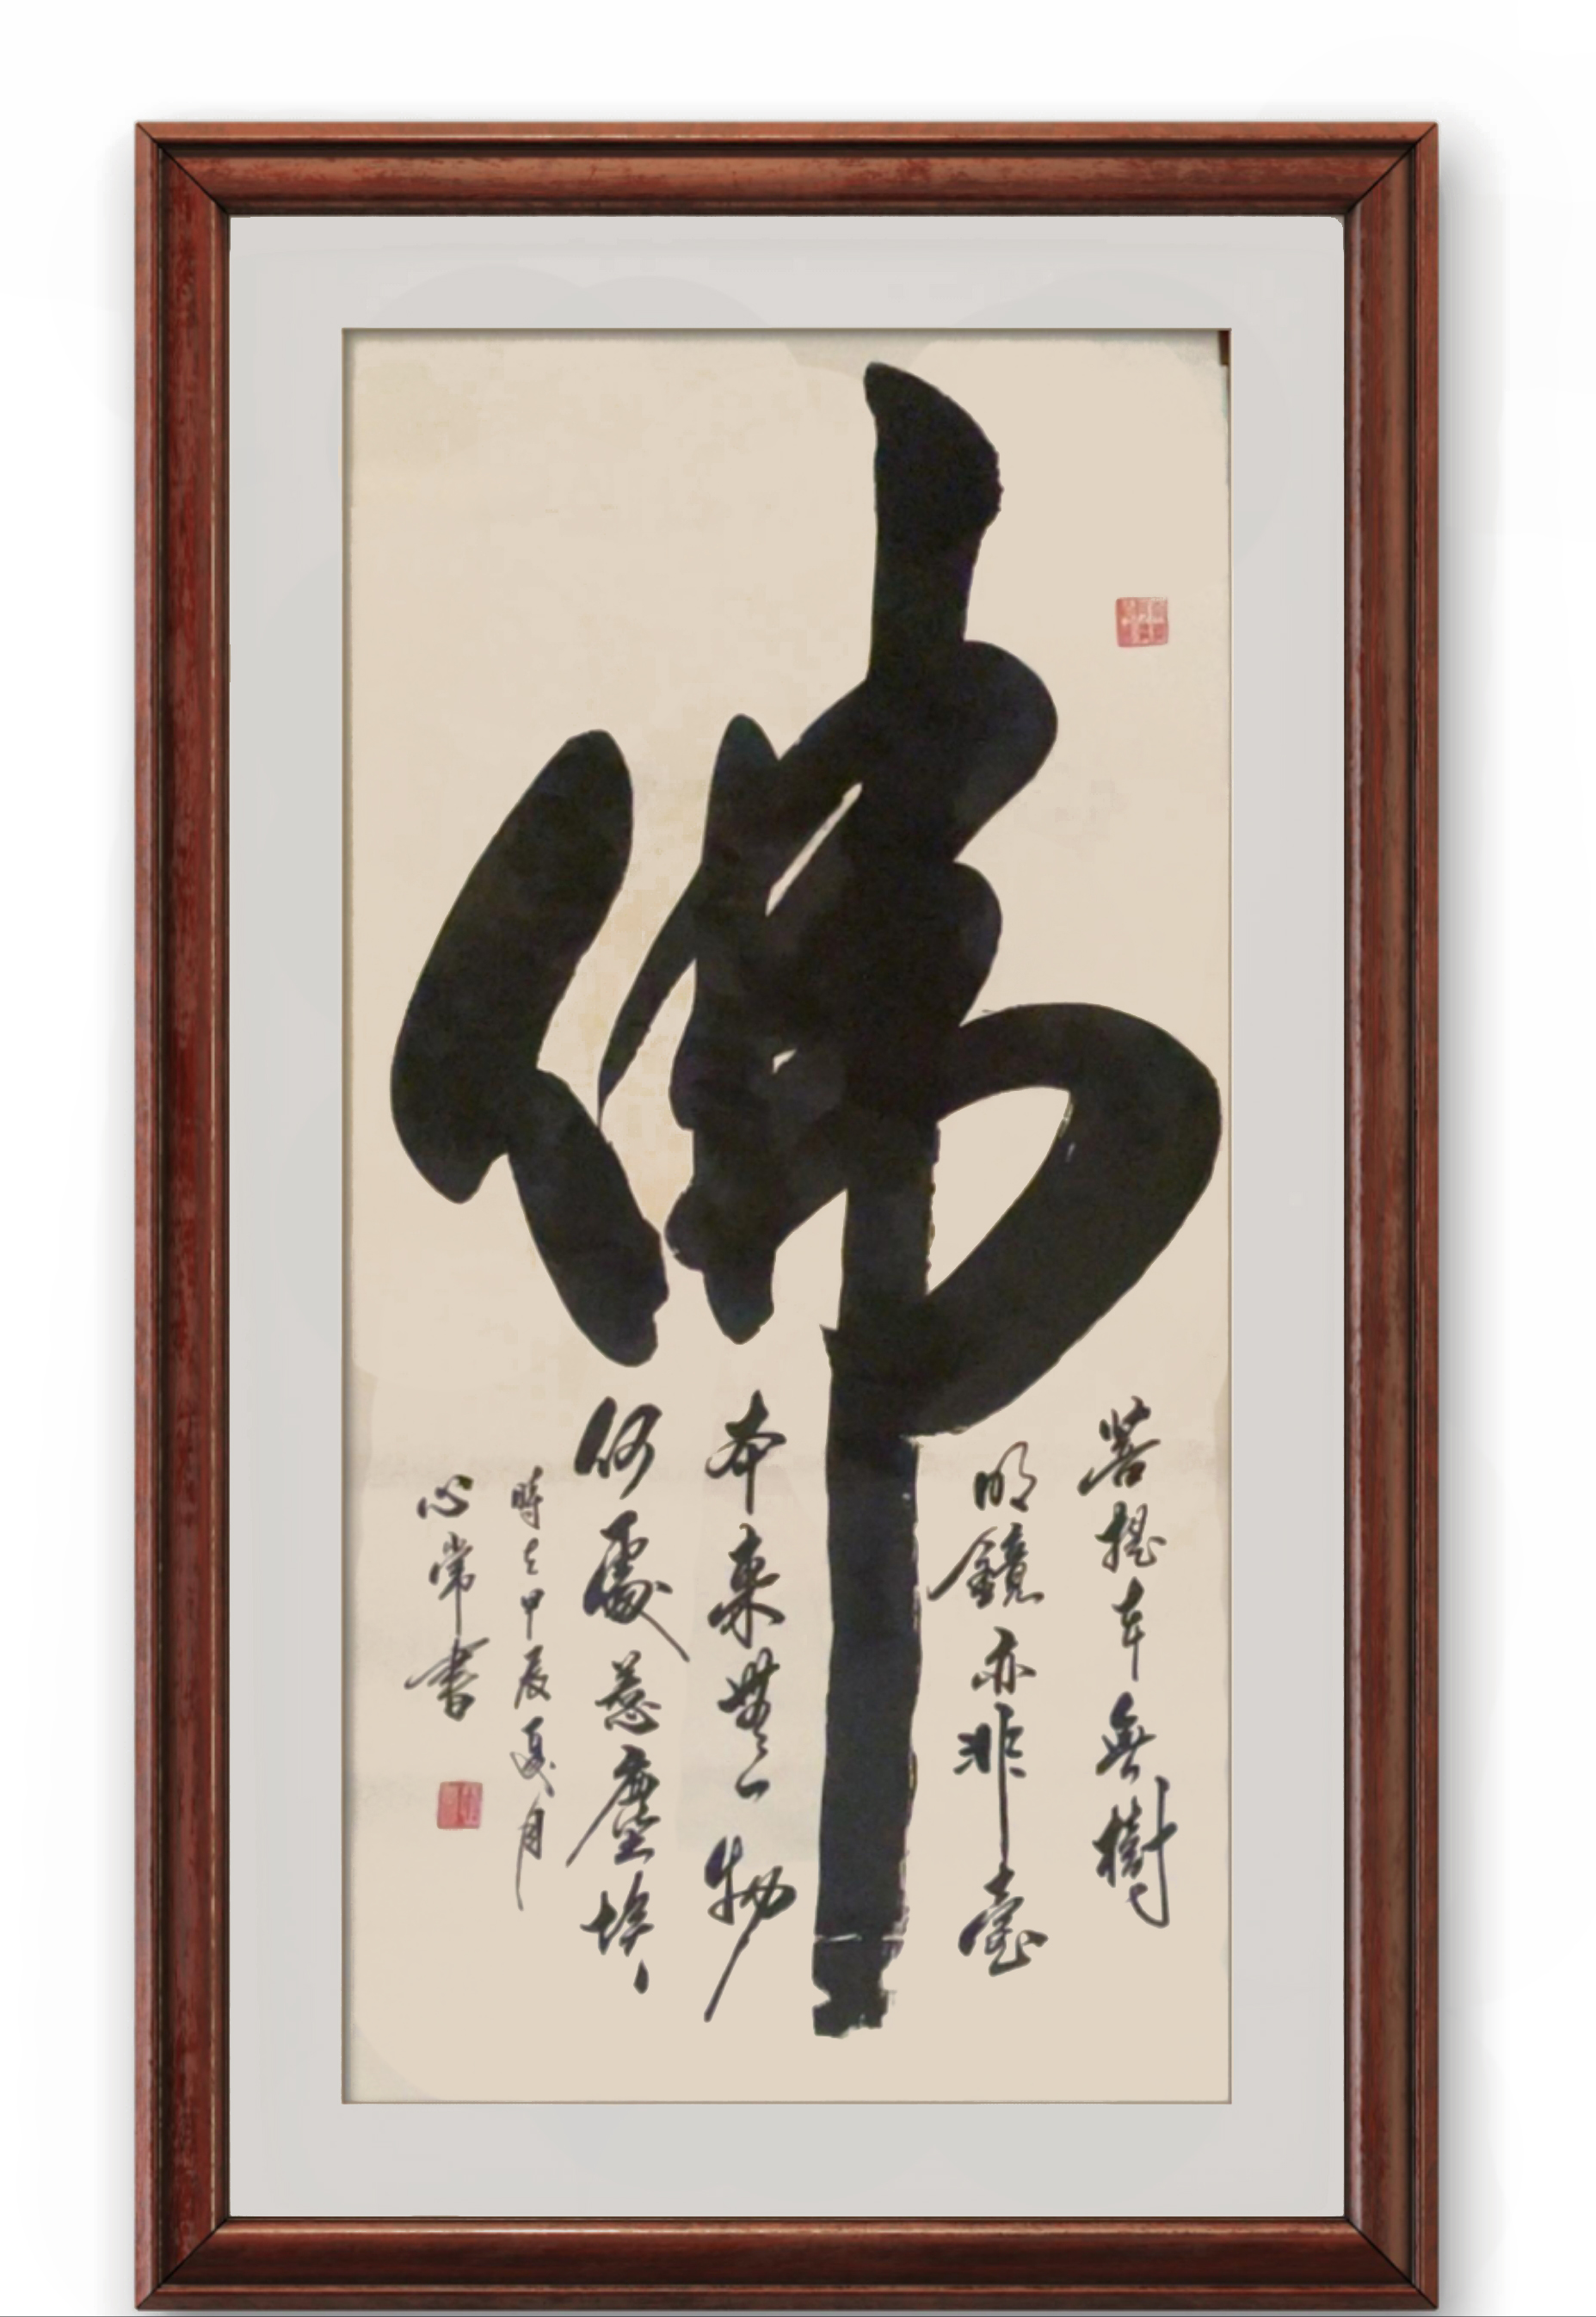 佛
菩提本無樹
明鏡亦非臺
本來無一物
何處惹塵埃
時在甲辰夏月
心常書